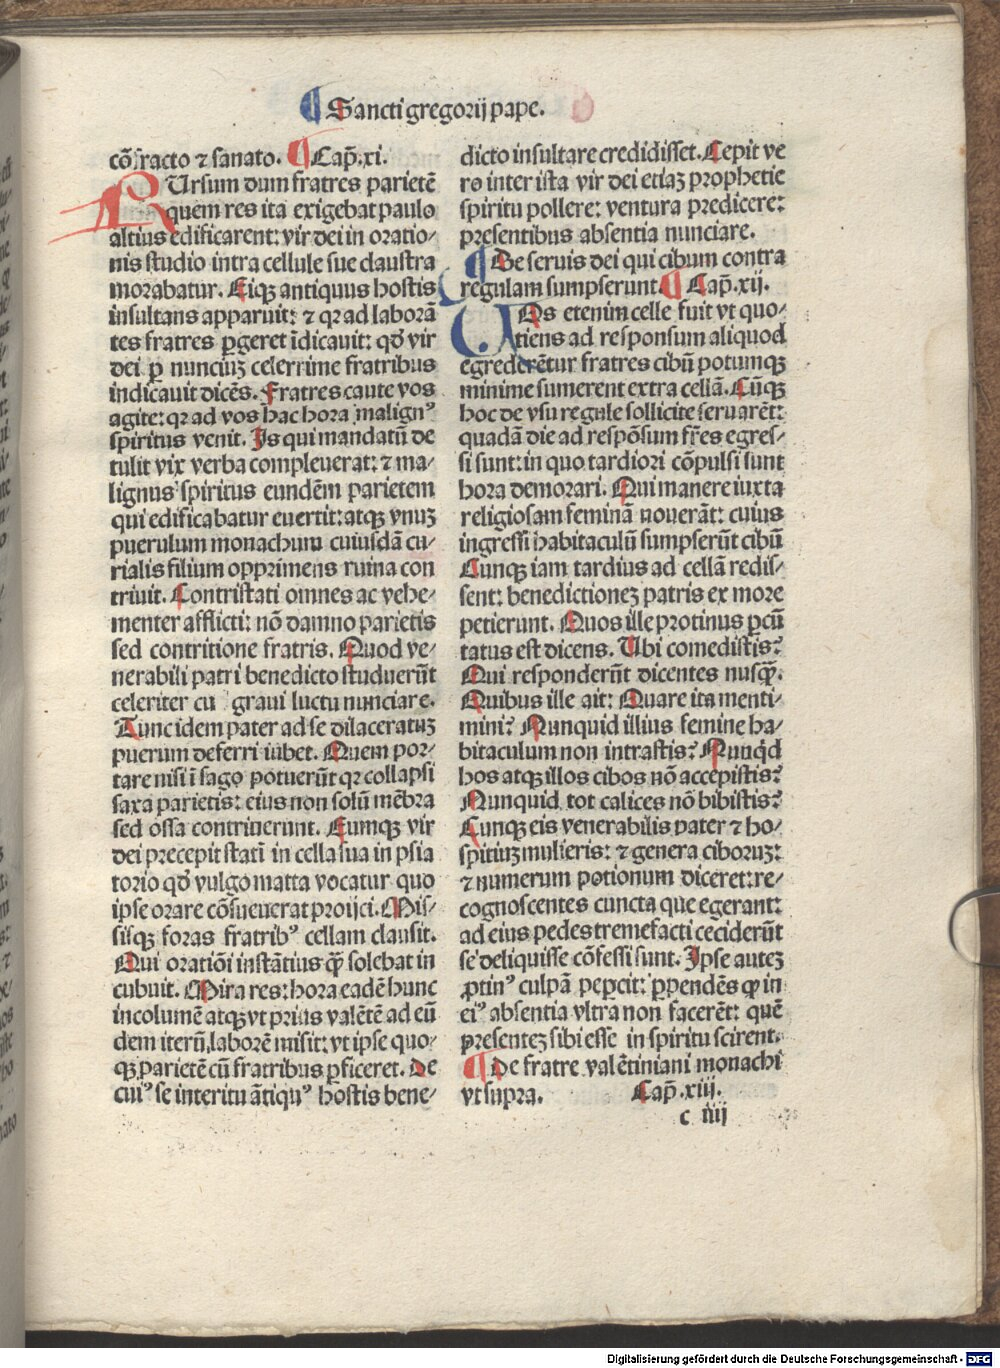 ¶ Sancti gregorij pape.
cōfracto ⁊ sanato. ¶ Cap̄.xi.
RUrsum dum fratres parietē
quem res ita exigebat paulo
altius edificarent: vir dei in oratio⸗
nis studio intra cellule sue claustra
morabatur. Eiqꝫ antiquus hostis
insultans apparuit: ⁊ qꝛ ad laborā
tes fratres ꝑgeret īdicauit: qđ vir
dei ꝑ nunciuꝫ celerrime fratribus
indicauit dicēs. Fratres caute vos
agite: qꝛ ad vos hac hora malignꝰ
spiritus venit. Is qui mandatū de
tulit vix verba compleuerat: ⁊ ma⸗
lignus spiritus eundēm parietem
qui edificabatur euertit: atqꝫ vnuꝫ
puerulum monachum cuiusdā cu⸗
rialis filium opprimens ruina con
triuit. Contristati omnes ac vehe⸗
menter afflicti: nō damno parietis
sed contritione fratris. Quod ve⸗
nerabili patri benedicto studuerūt
celeriter cu graui luctu nunciare.
Tunc idem pater ad se dilaceratuꝫ
puerum deferri iubet. Quem por⸗
tare nisi ī sago potuerūt qꝛ collapsi
saxa parietis: eius non solū mēbra
sed ossa contriuerunt. Eumqꝫ vir
dei precepit statī in cella sua in psia
torio qđ vulgo matta vocatur quo
ipse orare cōsueuerat proijci. Mis⸗
sisqꝫ foras fratribꝰ cellam clausit.
Qui oratiōi instātius qꝫ̄ solebat in
cubuit. Mira res: hora eadē hunc
incolumē atqꝫ vt prius valētē ad eū
dem iterū laborē misit: vt ipse quo⸗
qꝫ parietē cū fratribus ꝑficeret. De
cuiꝰ se interitu ātiquꝰ hostis bene⸗
dicto insultare credidisset. Cepit ve
ro inter ista vir dei etiaꝫ prophetie
spiritu pollere: ventura predicere:
presentibus absentia nunciare.
¶ De seruis dei qui cibum contra
regulam sumpserunt. ¶ Cap̄.xij.
MOs etenim celle fuit vt quo⸗
tiens ad responsum aliquod
egrederētur fratres cibū potumqꝫ
minime sumerent extra cellā. Cūqꝫ
hoc de vsu regule sollicite seruarēt:
quadā die ad respōsum fr̄es egres⸗
si sunt: in quo tardiori cōpulsi sunt
hora demorari. Qui manere iuxta
religiosam feminā nouerāt: cuius
ingressi habitaculū sumpserūt cibū
Cunqꝫ iam tardius ad cellā redis⸗
sent: benedictioneꝫ patris ex more
petierunt. Quos ille protinus ꝑcū
tatus est dicens. Ubi comedistis?
Qui responderūt dicentes nusqꝫ̄.
Quibus ille ait: Quare ita menti⸗
mini? Nunquid illius femine ha⸗
bitaculum non intrastis? Nunqđ
hos atqꝫ illos cibos nō accepistis?
Nunquid tot calices nō bibistis?
Cunqꝫ eis venerabilis pater ⁊ ho⸗
spitiuꝫ mulieris: ⁊ genera ciboruꝫ:
⁊ numerum potionum diceret: re⸗
cognoscentes cuncta que egerant:
ad eius pedes tremefacti ceciderūt
se deliquisse cōfessi sunt. Ipse auteꝫ
ꝓtinꝰ culpā peꝑcit: ꝑpendēs qꝫ in
eiꝰ absentia vltra non facerēt: quē
presenteꝫ sibi esse in spiritu scirent.
¶ De fratre valētiniani monachi
vt supra. Cap̄.xiij.
c iiij
Digitalisierung gefördert durch die Deutsche Forschungsgemeinschaft - DFG